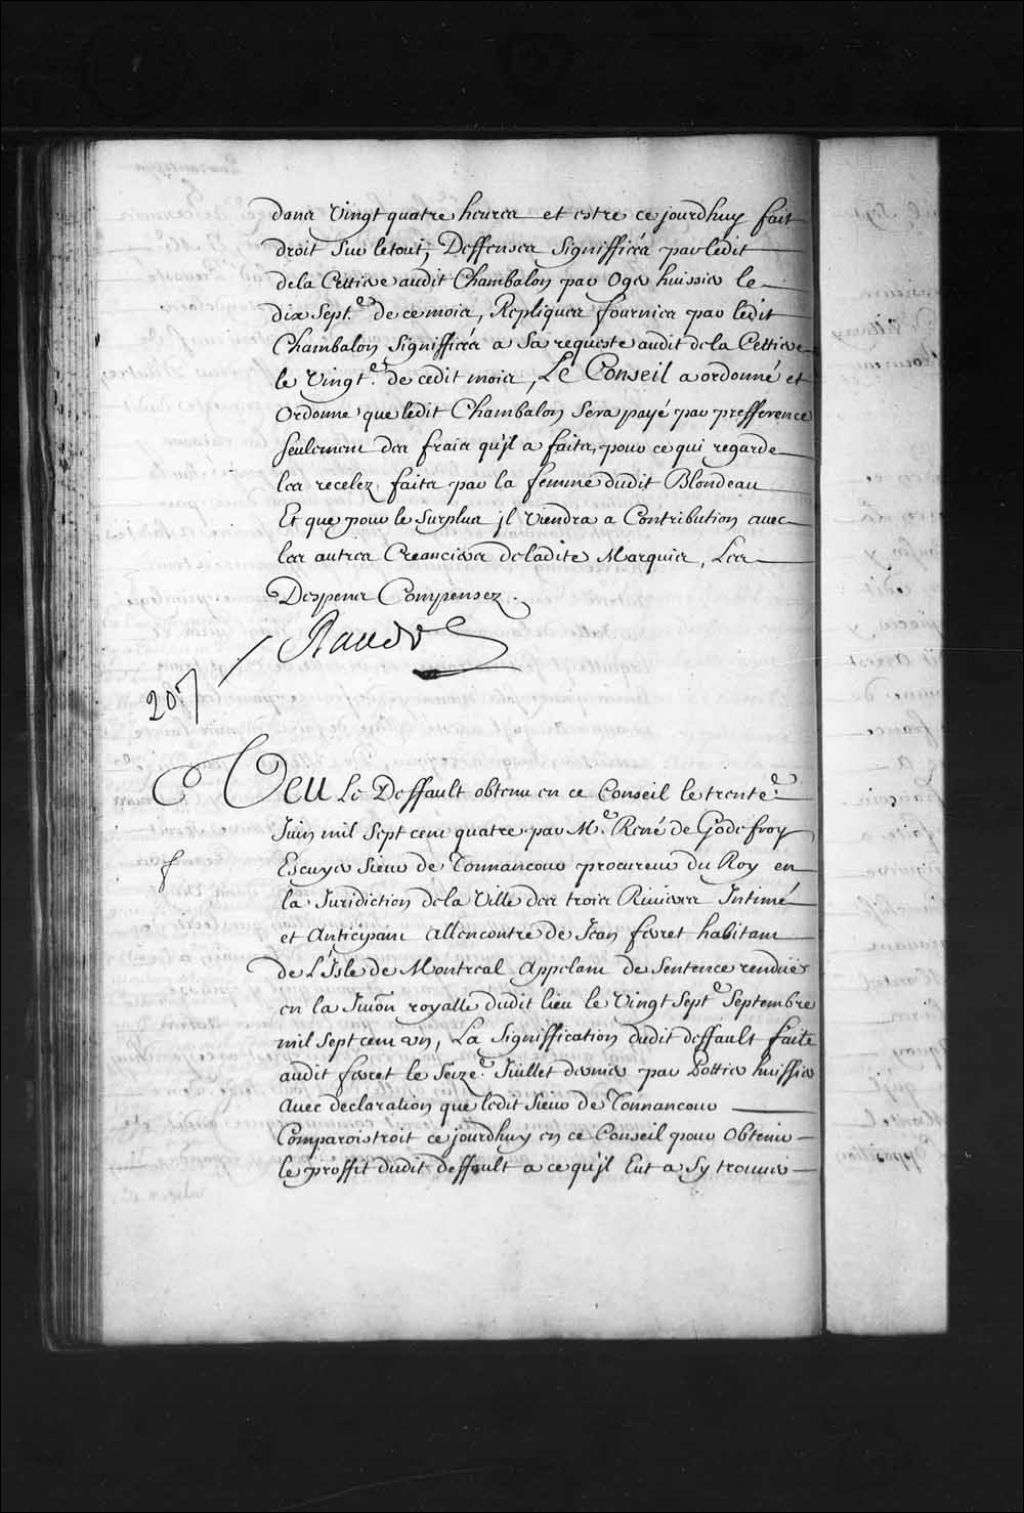 dans Vingt quatre heures et estre ce jourdhuy fait
droit Sur letout, Deffenses Signiffiées par ledit
dela Cettiere audit Chambalon par Oger huissier le
dix Sept.e de ce mois, Repliques fournies par ledit
Chambalon Signiffiées a Sa requeste audit dela Cettiere
le Vingt.e de cedit mois, Le Conseil a ordonné et
Ordonne que ledit Chambalon Sera payé par prefference
Seulement des frais qu'jl a faits, pour ce qui regarde
les recelez faits par la femme dudit Blondeau
Et que pour le Surplus jl Viendra a Contribution avec
les autres Creanciers deladite Marquis, Les
Despens Compensez.
Raudot
207
Veu Le Deffault obtenu en ce Conseil le trente.e
Juin mil Sept cent quatre par M.e René de Godefroy
Escuyer Sieur de Tonnancour procureur du Roy en
la Juridiction dela Ville des trois Rivieres Intimé
et Anticipant allencontre de Jean fevret habitant
de L'Isle de Montreal Appelant de Sentence rendüe
en la Juiōn royalle dudit lieu le Vingt Sept.e Septembre
mil Sept cent un, La Signiffication dudit deffault faite
audit fevret le Seize.e Juillet dernier par Pottier huissier
Avec declaration que ledit Sieur de Tonnancour
Comparoistroit ce jourdhuy en ce Conseil pour Obtenir
le proffit dudit deffault a ce qu'jl Eut a Sy trouver